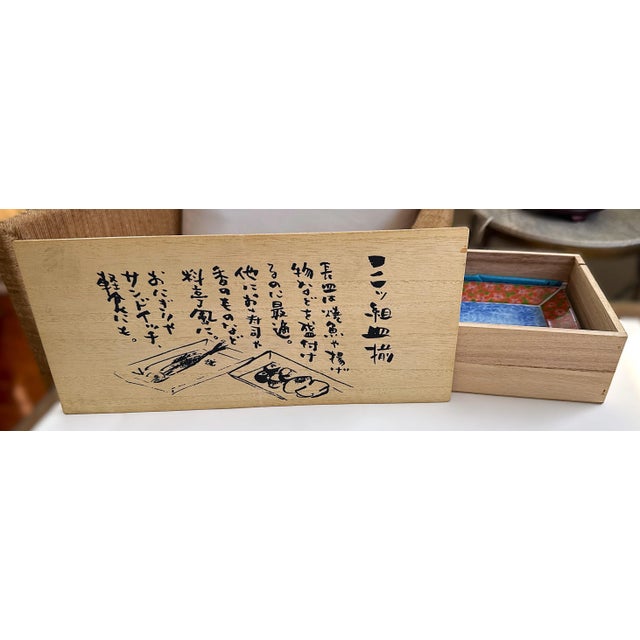 三ツ組皿揃
長皿は焼魚や揚げ
物などを盛付け
るのに最適。
他にお寿司や
香のものなど
料亭風に、
おにぎりや
サンドイッチ、
軽食にも。